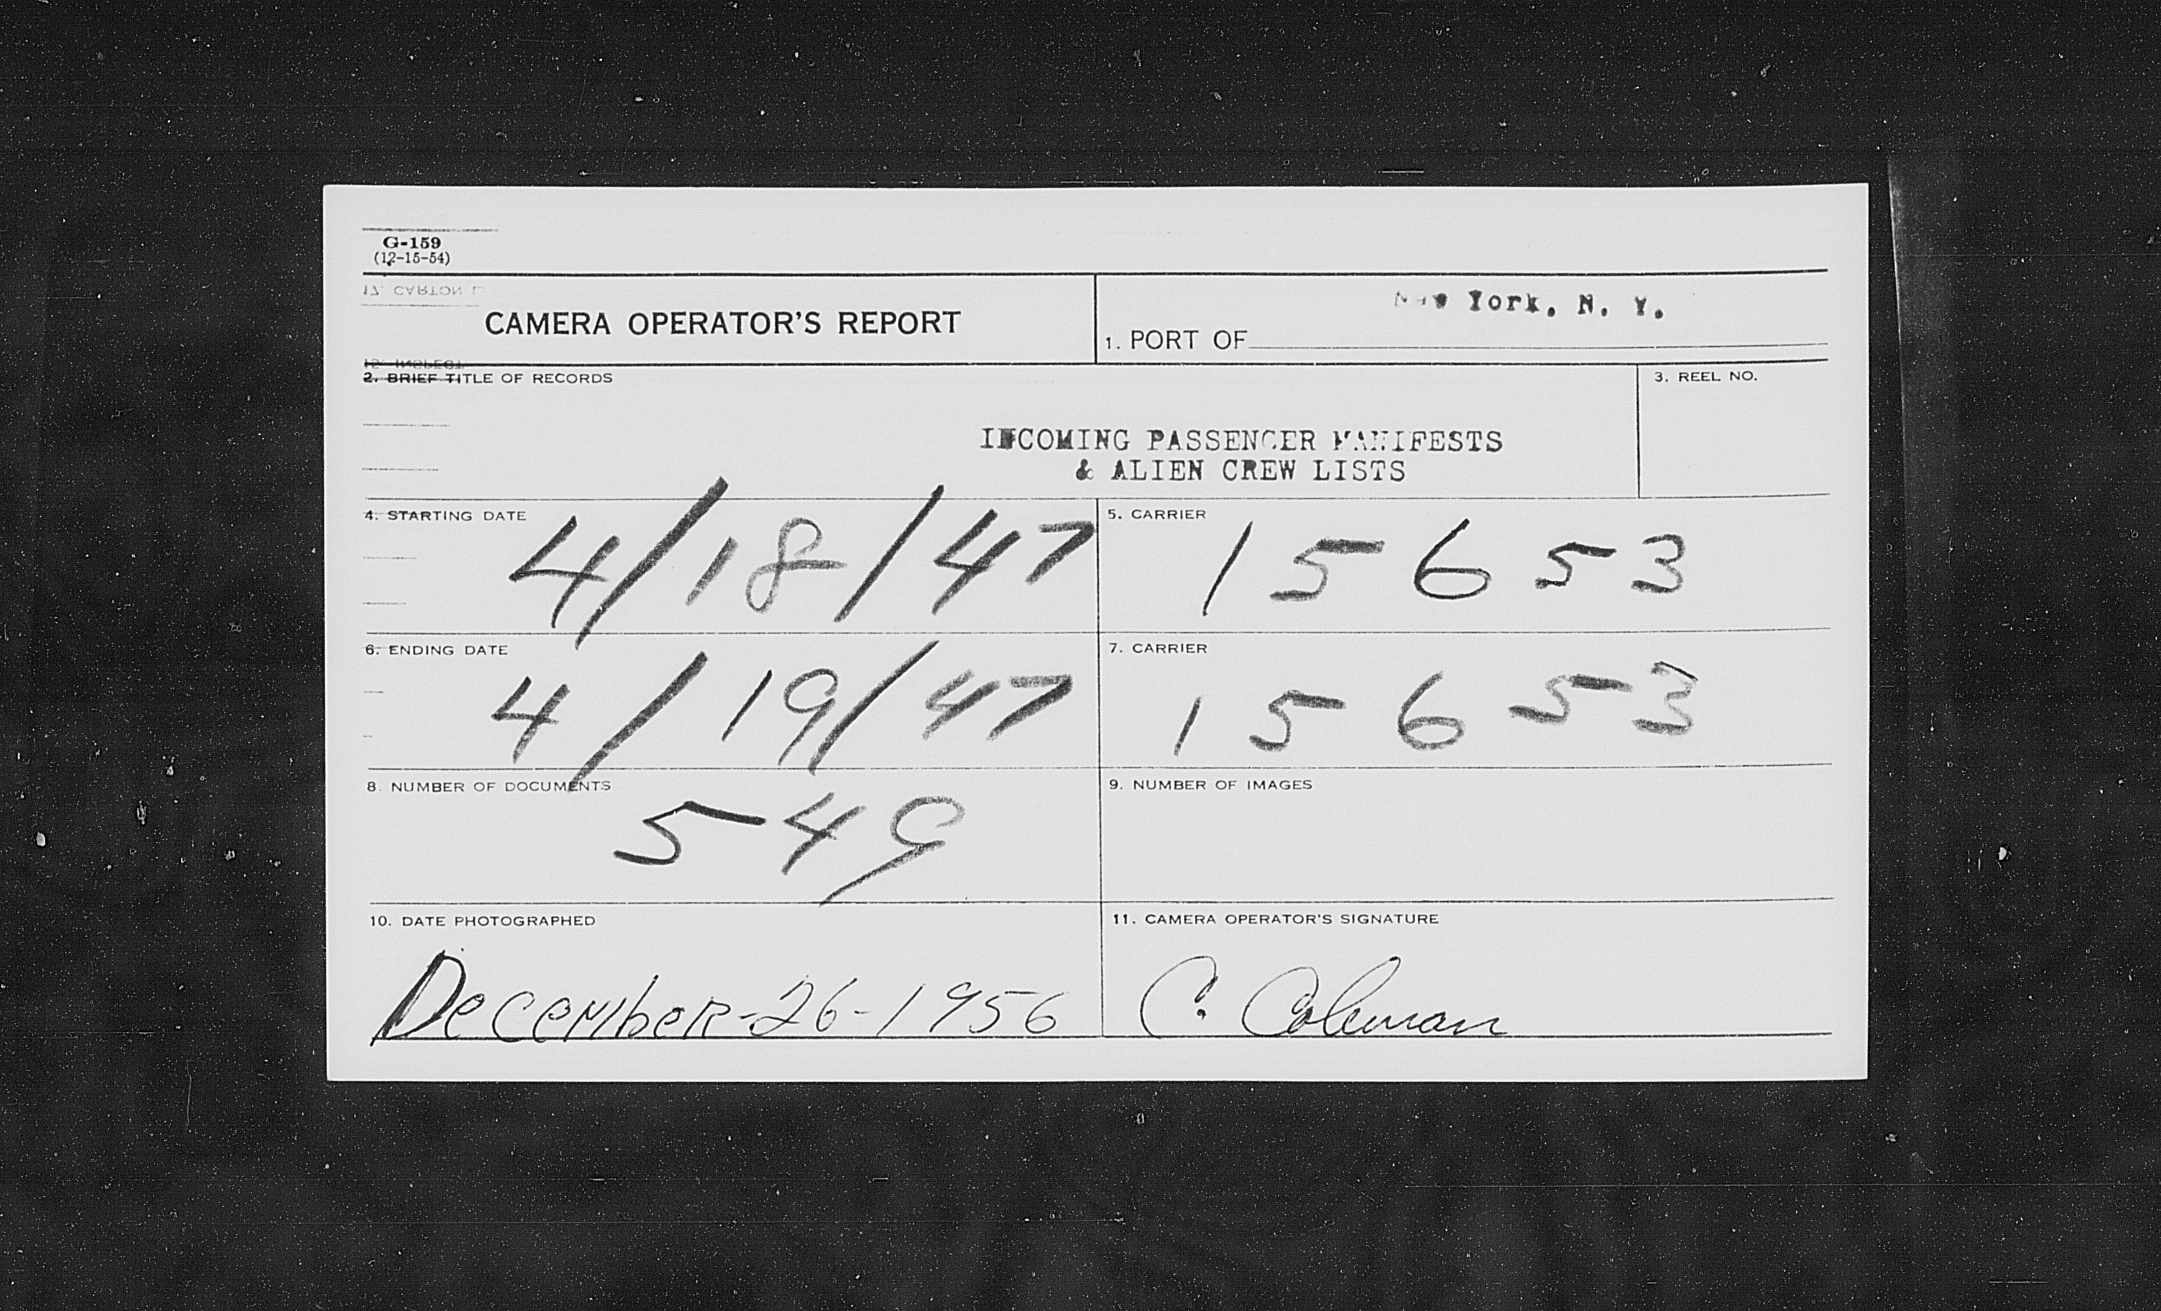 G-159
(12-15-54)
CAMERA OPERATOR'S REPORT
New York, N. Y.
1. PORT OF
2. BRIEF TITLE OF RECORDS
3. REEL NO.
INCOMING PASSENGER MANIFESTS
& ALIEN CREW LISTS
4. STARTING DATE
4/18/47
5. CARRIER
15653
6. ENDING DATE
4/19/47
7. CARRIER
15653
8. NUMBER OF DOCUMENTS
549
9. NUMBER OF IMAGES
10. DATE PHOTOGRAPHED
December-26-1956
11. CAMERA OPERATOR'S SIGNATURE
C. Coleman